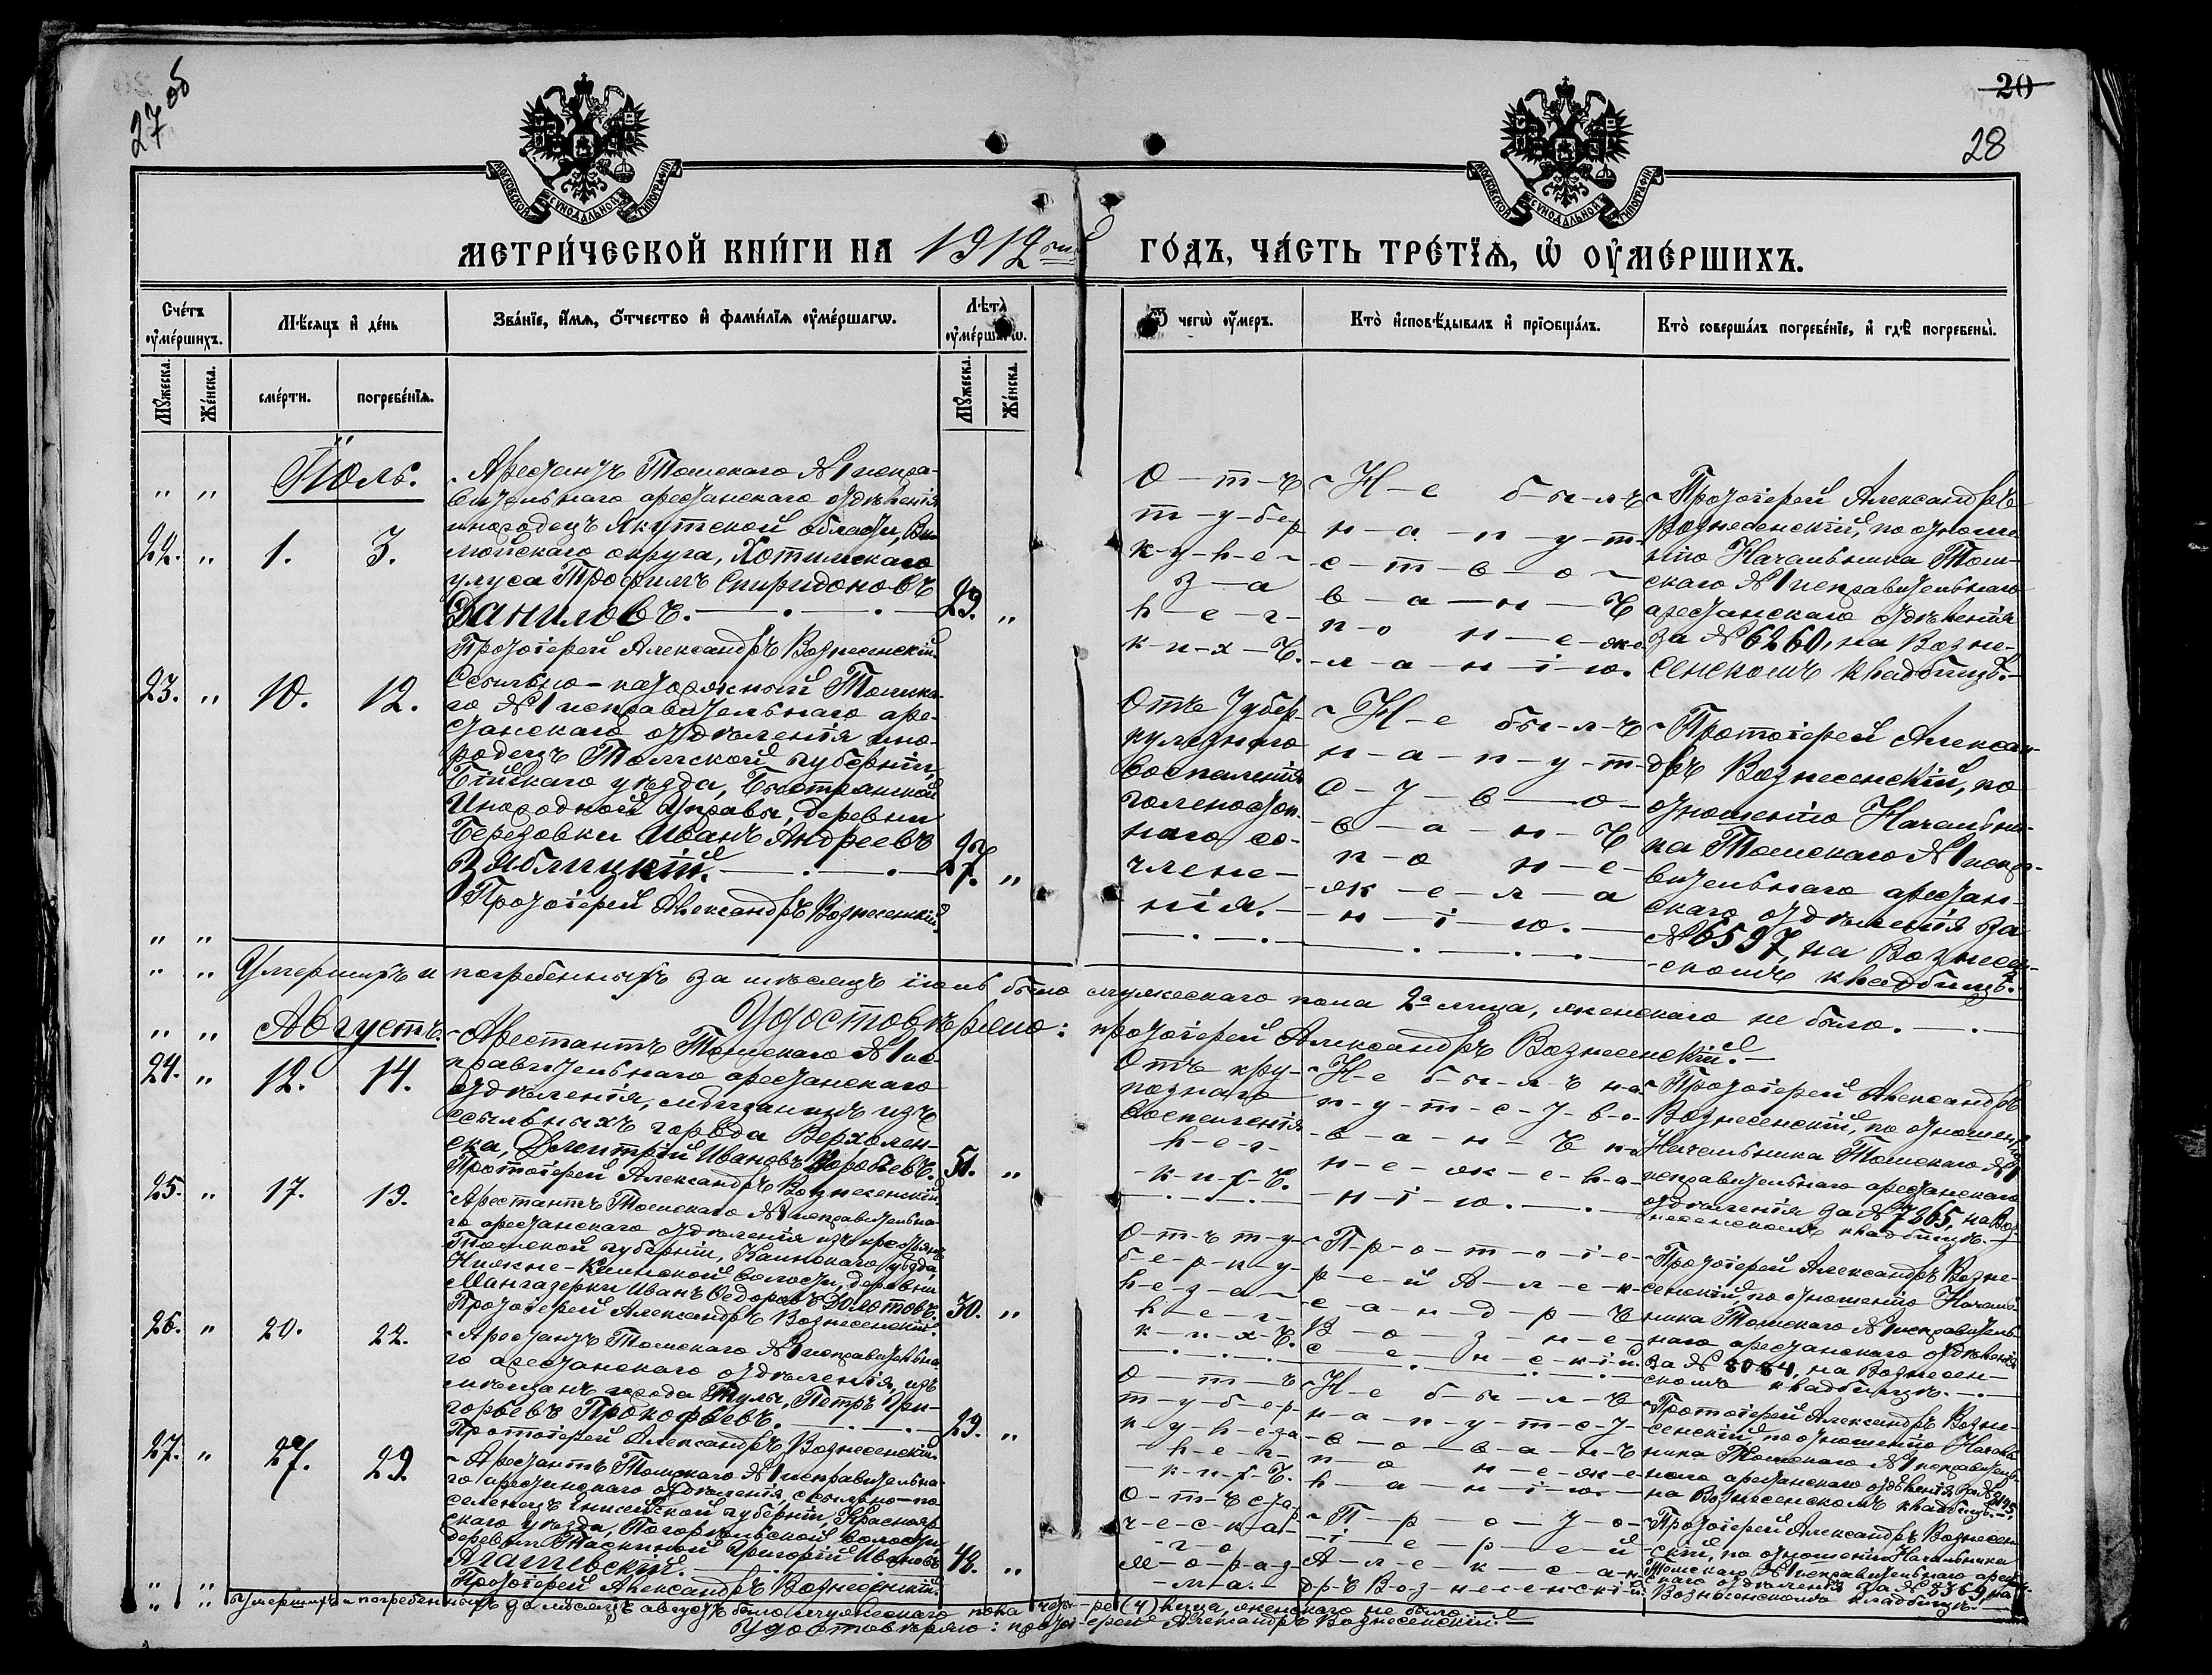 27 об
20
28
МОСКОВСКОЙ СѴНОДАЛЬНОЙ ТИПОГРАФІИ
МОСКОВСКОЙ СѴНОДАЛЬНОЙ ТИПОГРАФІИ
МЕТРИ́ЧЕСКОЙ КНИ́ГИ НА 1912 ГО́ДЪ, ЧА́СТЬ ТРЕ́ТЇѦ, Ѡ҆ ОУ҆МЕ́РШИХЪ.
Сче́тъ оу҆ме́ршихъ.
Мѣ́сяцъ и҆ де́нь
Зва́нїе, и҆́мѧ, ѻ҆́тчество и҆ фами́лїѧ оу҆ме́ршагѡ.
Лѣ́та оу҆ме́ршагѡ.
Ѿ чегѡ̀ оу҆́меръ.
Кто̀ и҆сповѣ́дывалъ и҆ прїѡбща́лъ.
Кто̀ соверша́лъ погребе́нїе, и҆ гдѣ̀ погребены̀.
Мꙋ́жеска.
Же́нска.
сме́рти.
погребе́нїѧ.
Мꙋ́жеска.
Же́нска.
Іюль.
22. " 1. 3.
Арестантъ Томскаго №1 испра-
вительнаго арестанскаго отдѣленія
инородецъ Якутской области, Ви-
люйскаго округа, Хотинскаго
улуса Трофимъ Спиридоновъ
Даниловъ. 29. "
Протоіерей Александръ Вознесенскій.
О-т-ъ
т-у-бер
к-у-л-е-
з-а
л-е-г-
к-и-х-ъ.
Н-е б-ы-л-ъ
н-а-п-у-т-
с-т-в-о-
в-а-н-ъ
п-о н-е-же
л-а-н-і-ю.
Протоіерей Александръ
Вознесенскій, по отноше
нію Начальника Том-
скаго №1 исправительнаго
арестанскаго отдѣленія
за №6260, на Возне-
сенскомъ кладбищѣ.
23. " 10. 12.
Ссыльно-каторжный Томска-
го №1 исправительнаго аре-
станскаго отдѣленія ино-
родецъ Томской губерніи,
Бійскаго уѣзда, Быстрянской
Инородной Управы, деревни
Березовки Иванъ Андреевъ
27. "
Протоіерей Александръ Вознесенскій.
Отъ тубер-
кулезнаго
воспаленія
голеностоп-
наго со-
члене-
нія.
Н-е бы-л-ъ
н-а-п-у-т-
с-т-в-о-
в-а-н-ъ
п-о н-е-
ж-е-л-а
н-і-ю.
Протоіерей Алексан-
дръ Вознесенскій, по
отношенію Начальни-
ка Томскаго №1 испра-
вительнаго арестан-
скаго отдѣленія за
№6597, на Вознесен-
скомъ кладбищѣ.
Умершихъ и погребенныхъ за мѣсяцъ іюль было мужескаго пола 2а лица, женскаго не было.
Удостовѣряю: протоіерей Александръ Вознесенскій.
Августъ.
24. " 12. 14.
Арестантъ Томскаго №1 ис-
правительнаго арестанскаго
отдѣленія, мѣщанинъ изъ
ссыльныхъ города Верхолен-
ска, Дмитрій Ивановъ Воробьевъ. 51. "
Протоіерей Александръ Вознесенскій.
Отъ кру-
познаго
воспаленія
л-е-г-
к-и-х-ъ.
Н-е б-ы-л-ъ на-
п-у-т-с-т-в-о-
в-а-н-ъ п-о
н-е-ж-е-л-а-
н-і-ю.
Протоіерей Александръ
Вознесенскій, по отношенію
Начальника Томскаго №1
исправительнаго арестанскаго
отдѣленія за №7865, на Воз-
несенскомъ кладбищѣ.
25. " 17. 19.
Арестантъ Томскаго №1 исправительна-
го арестанскаго отдѣленія изъ крестьянъ
Томской губерніи, Каинскаго уѣзда,
Нижне-Каинской волости, деревни
Мангазерки Иванъ Ѳедоровъ Долотовъ. 30. "
Протоіерей Александръ Вознесенскій.
О-т-ъ т-у-
б-е-р-к-у-
л-е-з-а-
л-е-г-
к-и-х-ъ.
П-р-о-т-о-і-е-
р-е-й А-л-е-к-
с-а-н-д-р-ъ
В-о-з-н-е-
с-е-н-с-к-і-й.
Протоіерей Александръ Возне-
сенскій, по отношенію Началь-
ника Томскаго №1 исправитель-
наго арестанскаго отдѣленія
за №8084, на Вознесен-
скомъ кладбищѣ.
26. " 20. 22.
Арестантъ Томскаго №1 исправительна
го арестанскаго отдѣленія, изъ
мѣщанъ города Тулы, Петръ Гри-
горьевъ Прокофьевъ. 29. "
Протоіерей Александръ Вознесенскій.
О-т-ъ
т-у-б-е-р-
к-у-л-е-за
л-е-г-
к-и-х-ъ.
Н-е б-ы-л-ъ
н-а-п-у-т-с-т-
в-о-в-а-н-ъ
п-о н-е-ж-е
л-а-н-і-ю.
Протоіерей Александръ Возне-
сенскій, по отношенію Началь
ника Томскаго №1 исправитель-
наго арестанскаго отдѣленія за №
на Вознесенскомъ кладбищѣ.
27. " 27. 29.
Арестантъ Томскаго №1 исправительна-
го арестанскаго отдѣленія, ссыльно-по
селенецъ Енисейской губерніи, Краснояр
скаго уѣзда, Погорѣльской волости,
деревни Таскиной Григорій Ивановъ
48. "
Протоіерей Александръ Вознесенскій.
О-т-ъ ста-
р-ч-е-с-к-а-
г-о
м-а-р-аз-
м-а.
П-р-о-т-о-
і-е-р-е-й
А-л-е-к-с-а-н-
др-ъ Воз-несенскі-й.
Протоіерей Александръ Вознесен
скій, по отношенію Начальника
Томскаго №1 исправительнаго арестан-
скаго отдѣленія за №8369, на
Вознесенскомъ кладбищѣ.
Умершихъ и погребенныхъ за мѣсяцъ августъ было мужескаго пола четы-ре (4) лица, женскаго не было.
Удостовѣряю: протоіерей Александръ Вознесенскій.